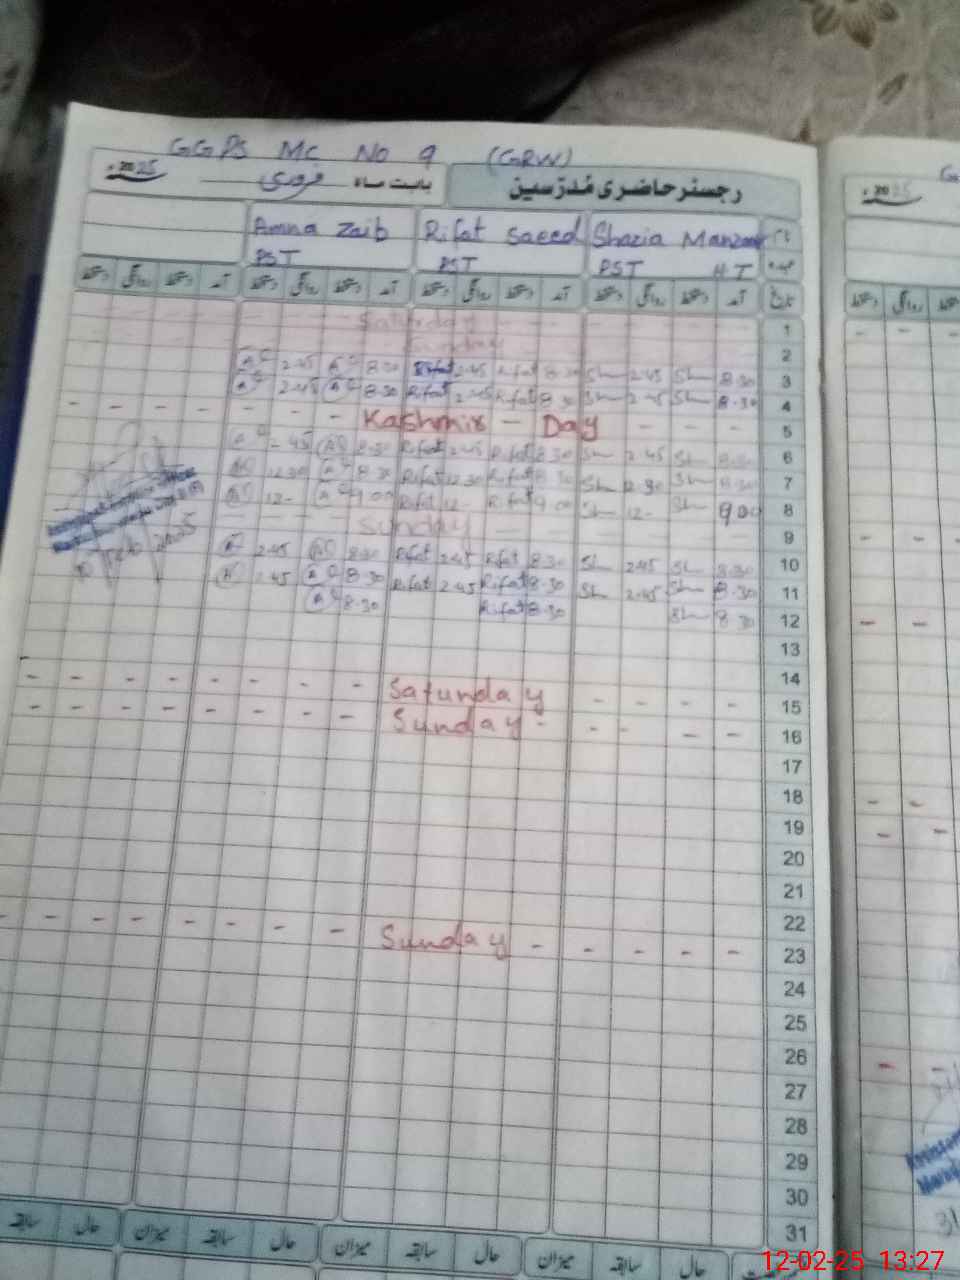 GGPS MC NO 9 (GRW)
رجسٹر حاضری مُدرّسین بابت ماہ فروری 2025ء
Shazia Manzoor Rifat Saeed Amna Zaib
PST H T PST PST
تاریخ آمد دستخط روانگی دستخط آمد دستخط روانگی دستخط آمد دستخط روانگی دستخط آمد دستخط روانگی دستخط
1 Saturday
2 Sunday
3 8.30 Sh 2.45 Sh 8.30 Rifat 2.45 Rifat 8.30 2.45
4 8.30 Sh 2.45 Sh 8.30 Rifat 2.45 Rifat 8.30 2.45
5 Kashmir - Day
6 8.30 Sh 2.45 Sh 8.30 Rifat 2.45 Rifat 8.30
7 8.30 Sh 12.30 Sh 8.30 Rifat 12.30 Rifat 8.30 12.30
8 9.00 Sh 12- Sh 9.00 Rifat 12- Rifat 9.00 12-
9 Sunday
10 8.30 Sh 2.45 Sh 8.30 Rifat 2.45 Rifat 8.30 2.45
11 8.30 Sh 2.45 Sh 8.30 Rifat 2.45 Rifat 8.30 2.45
12 8.30 Sh 8.30 Rifat 8.30
13
14
15 Saturday
16 Sunday
17
18
19
20
21
22
23 Sunday
24
25
26
27
28
29
30
31
حال سابقہ میزان حال سابقہ میزان حال سابقہ میزان حال سابقہ
12-02-25 13:27